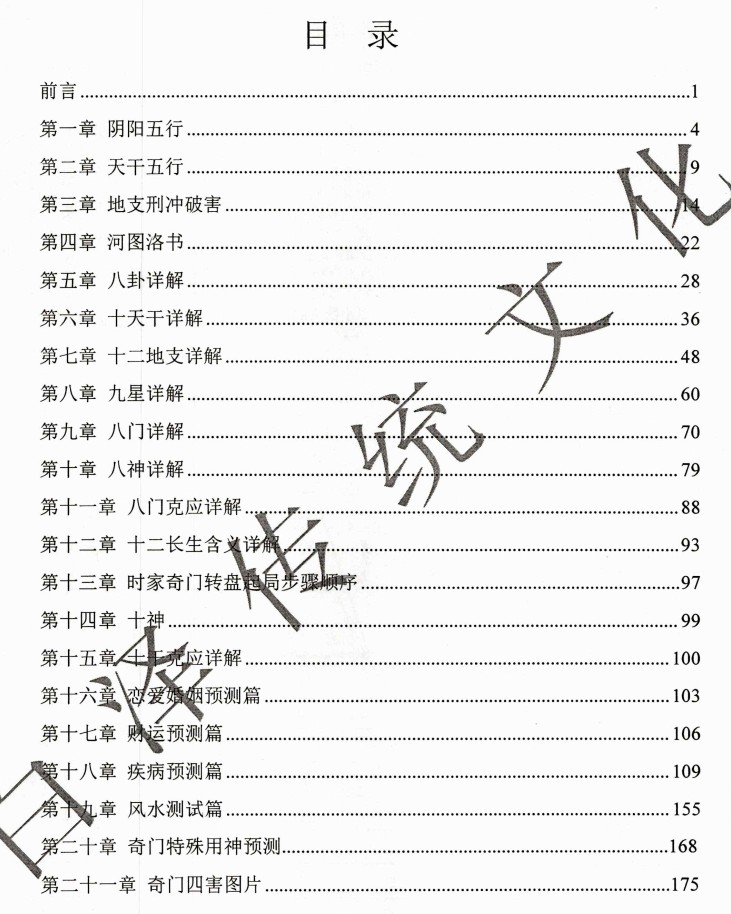 目 录
前言........1
第一章 阴阳五行........4
第二章 天干五行........9
第三章 地支刑冲破害........14
第四章 河图洛书........22
第五章 八卦详解........28
第六章 十天干详解........36
第七章 十二地支详解........48
第八章 九星详解........60
第九章 八门详解........70
第十章 八神详解........79
第十一章 八门克应详解........88
第十二章 十二长生含义详解........93
第十三章 时家奇门转盘起局步骤顺序........97
第十四章 十神........99
第十五章 十干克应详解........100
第十六章 恋爱婚姻预测篇........103
第十七章 财运预测篇........106
第十八章 疾病预测篇........109
第十九章 风水测试篇........155
第二十章 奇门特殊用神预测........168
第二十一章 奇门四害图片........175
泽传统文化